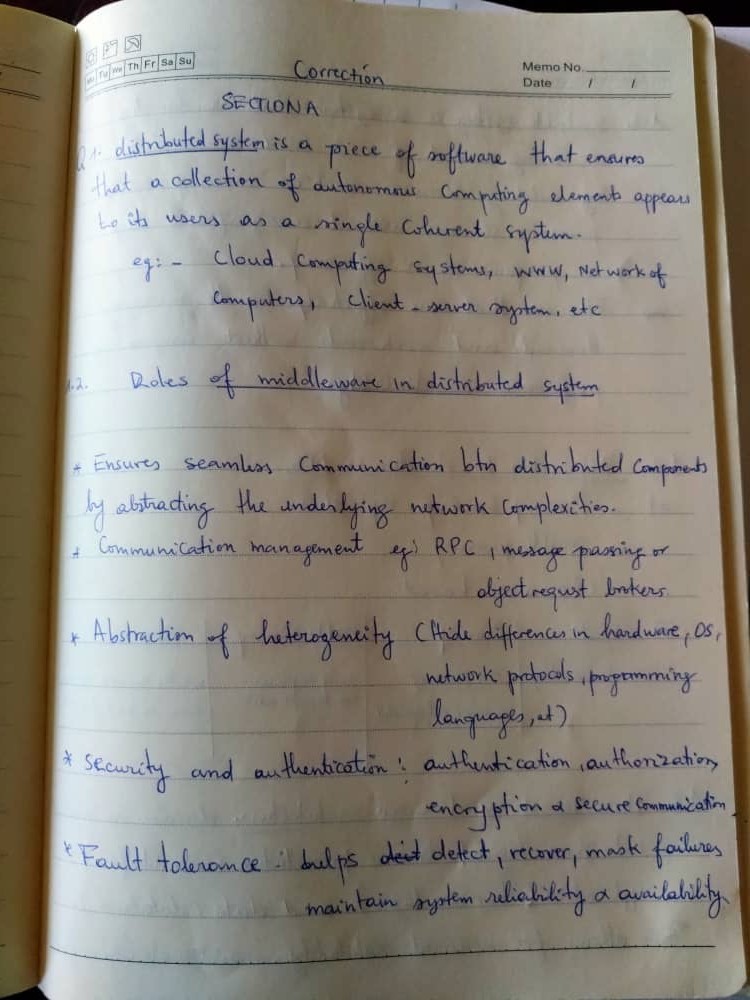 Mo Tu We Th Fr Sa Su
Memo No.
Date / /
Correction
SECTION A
Q1: distributed system is a piece of software that ensures
that a collection of autonomous Computing elements appears
to its users as a single Coherent system.
eg: - Cloud Computing systems, WWW, Network of
Computers, Client - server system, etc
1.2. Roles of middleware in distributed system
* Ensures seamless Communication btn distributed Components
by abstracting the underlying network Complexities.
* Communication management eg: RPC, message passing or
object requst brokers
* Abstraction of heterogeneity (Hide differences in hardware, OS,
network protocols, programming
languages, et)
* Security and authentication: authentication, authorization,
encryption & secure Communication.
* Fault tolerance: helps detect, recover, mask failures
maintain system reliability & availability.